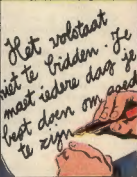 Het volstaat
niet te bidden. Je
moet iedere dag je
best doen om goed
te zijn